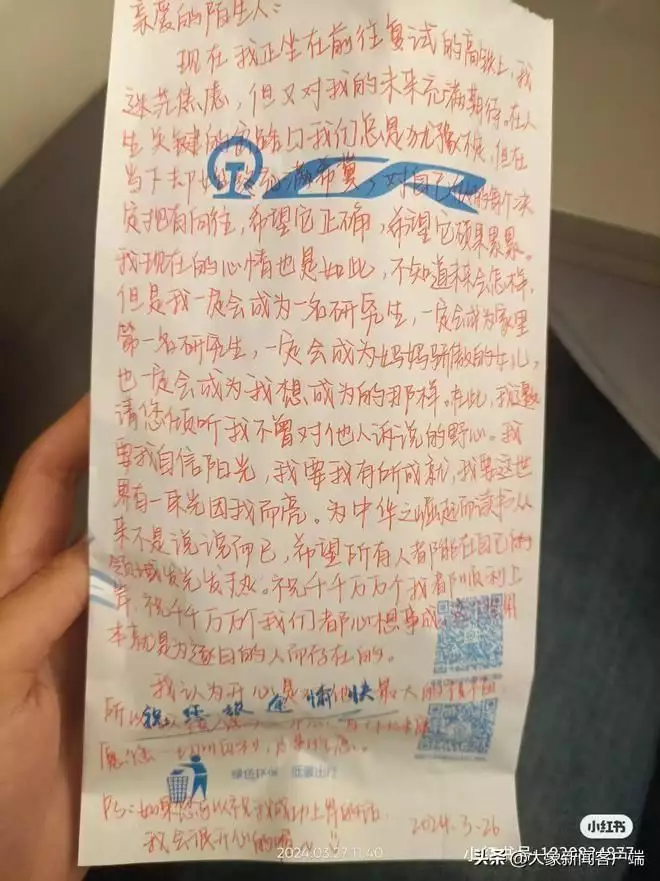 亲爱的陌生人：
现在我正坐在前往复试的高铁上，我
迷茫焦虑，但又对我的未来充满期待。在人
生关键的岔路口我们总是犹豫不决，但在
当下却始终充满希冀，对自己做的每个决
定抱有向往，希望它正确，希望它硕果累累。
我现在的心情也是如此，不知道未来会怎样，
但是我一定会成为一名研究生，一定会成为家里
第一名研究生，一定会成为妈妈骄傲的女儿，
也一定会成为我想成为的那样。在此，我邀
请您倾听我不曾对他人诉说的野心。我
要我自信阳光，我要我有所成就，我要这世
界有一束光因我而亮。为中华之崛起而读书从
来不是说说而已，希望所有人都能在自己的
领域发光发热。祝千千万万个我都顺利上
岸，祝千千万万个我们都心想事成，
本就是为逐目的人而存在的。
我认为开心是
所以祝 旅途愉快
愿您
绿色环保 低碳出行
PS：如果您可以祝我成功上岸的话
我会很开心的
2024.3.26
2024.03.27 11:40
小红书
小红书号：1939834977
头条 @大象新闻客户端